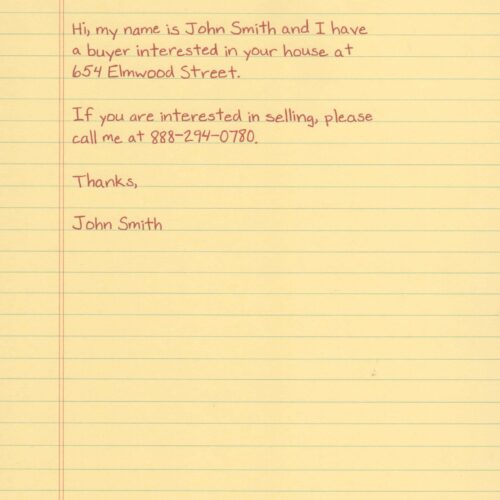 Hi, my name is John Smith and I have
a buyer interested in your house at
654 Elmwood Street.
If you are interested in selling, please
call me at 888-294-0780.
Thanks,
John Smith